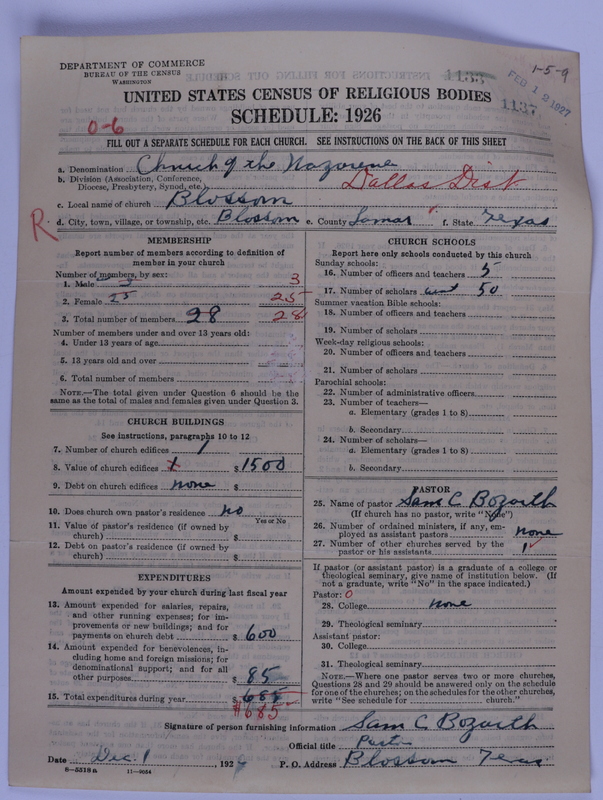 DEPARTMENT OF COMMERCE
BUREAU OF THE CENSUS
WASHINGTON
1133
1-5-9
FEB 12 1927
UNITED STATES CENSUS OF RELIGIOUS BODIES
1137
SCHEDULE: 1926
0-6
FILL OUT A SEPARATE SCHEDULE FOR EACH CHURCH. SEE INSTRUCTIONS ON THE BACK OF THIS SHEET
a. Denomination Church of the Nazarene
b. Division (Association, Conference, Diocese, Presbytery, Synod, etc.) Dallas Dist
c. Local name of church Blossom
R
d. City, town, village, or township, etc. Blossom e. County Lamar f. State Texas
MEMBERSHIP
Report number of members according to definition of
member in your church
Number of members, by sex:
1. Male 3 3
2. Female 25 25
3. Total number of members 28 28
Number of members under and over 13 years old:
4. Under 13 years of age
5. 13 years old and over
6. Total number of members
NOTE.—The total given under Question 6 should be
same as the total of males and females given under Question 3.
CHURCH BUILDINGS
See instructions, paragraphs 10 to 12
7. Number of church edifices 1
8. Value of church edifices 1 $1500
9. Debt on church edifices none $
10. Does church own pastor's residence? no
Yes or No
11. Value of pastor's residence (if owned by
church) $
12. Debt on pastor's residence (if owned by
church) $
EXPENDITURES
Amount expended by your church during last fiscal year
13. Amount expended for salaries, repairs,
and other running expenses; for im-
provements or new buildings; and for
payments on church debt $ 600
14. Amount expended for benevolences, in-
cluding home and foreign missions; for
denominational support; and for all
other purposes $ 85
15. Total expenditures during year $ 685
$685
CHURCH SCHOOLS
Report here only schools conducted by this church
Sunday schools:
16. Number of officers and teachers 5
17. Number of scholars 50
Summer vacation Bible schools:
18. Number of officers and teachers
19. Number of scholars
Week-day religious schools:
20. Number of officers and teachers
21. Number of scholars
Parochial schools:
22. Number of administrative officers
23. Number of teachers—
a. Elementary (grades 1 to 8)
b. Secondary
24. Number of scholars—
a. Elementary (grades 1 to 8)
b. Secondary
PASTOR
25. Name of pastor Sam C Bozarth
(If church has no pastor, write "None")
26. Number of ordained ministers, if any, em-
ployed as assistant pastors none
27. Number of other churches served by the
pastor or his assistants 1
If pastor (or assistant pastor) is a graduate of a college or
theological seminary, give name of institution below. (If
not a graduate, write "No" in the space indicated.)
Pastor: 0
28. College none
29. Theological seminary
Assistant pastor:
30. College
31. Theological seminary
NOTE.—Where one pastor serves two or more churches,
Questions 28 and 29 should be answered only on the schedule
for one of the churches; on the schedules for the other churches,
write "See schedule for church."
Signature of person furnishing information Sam C Bozarth
Official title Pastor
Date Dec. 1 1926 P. O. Address Blossom Texas
8—5518a 11—9054